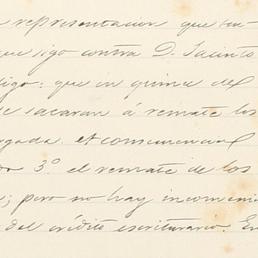 representacion que ten
que sigo contra D. Jacinto
digo: que en quince del
se sacaran á remate los
á consecuencia
3º. el remate de los
; pero no hay inconveni
del crédito escriturario. En